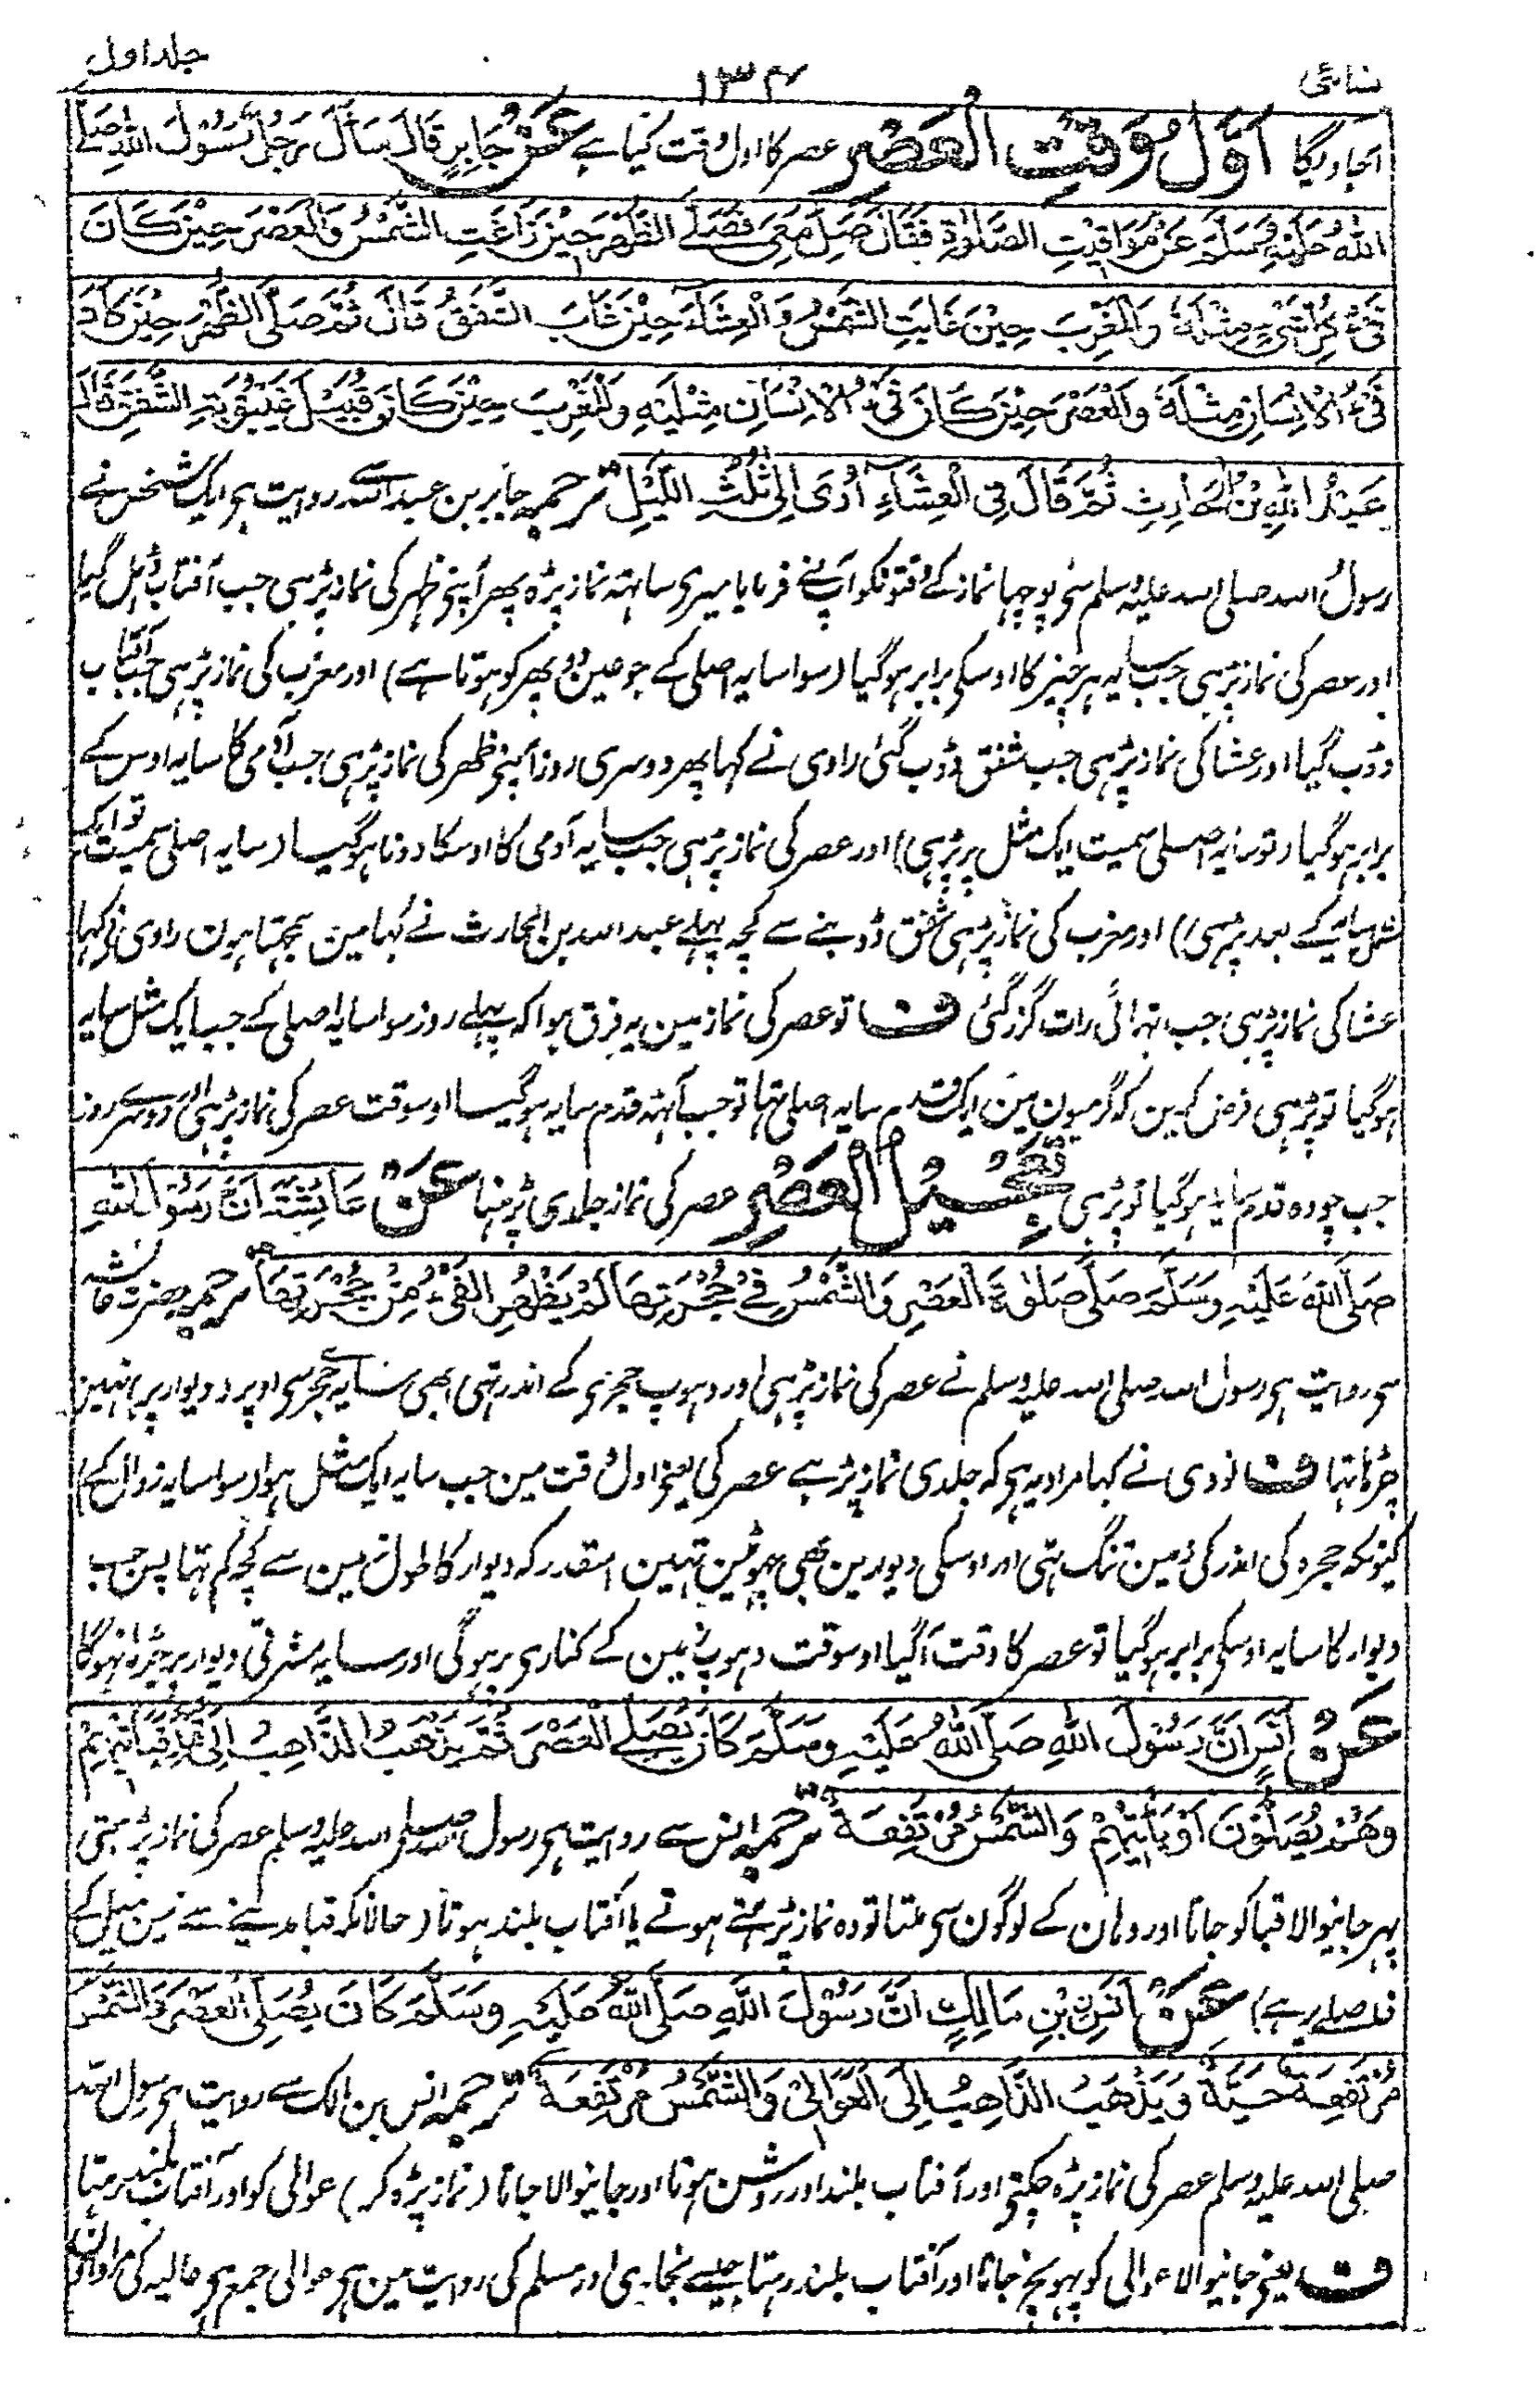 نسائی ۱۳۴ جلد اول
اجاویگا اَوَّلُ وَقْتِ الْعَصْرِ عصر کا اول وقت کیا ہے عَنْ جَابِرٍ قَالَ سَاَلَ رَجُلٌ رَسُوْلَ اللّٰهِ صَلَّی
اللّٰهُ عَلَیْهِ وَسَلَّمَ عَنْ مَوَاقِیْتِ الصَّلٰوةِ فَقَالَ صَلِّ مَعِیَ فَصَلَّی الظُّهْرَ حِیْنَ زَاغَتِ الشَّمْسُ وَالْعَصْرَ حِیْنَ کَانَ
فَیْءُ کُلِّ شَیْءٍ مِثْلَهٗ وَالْمَغْرِبَ حِیْنَ غَابَتِ الشَّمْسُ وَالْعِشَآءَ حِیْنَ غَابَ الشَّفَقُ قَالَ ثُمَّ صَلَّی الظُّهْرَ حِیْنَ کَانَ
فَیْءُ الْاِنْسَانِ مِثْلَهٗ وَالْعَصْرَ حِیْنَ کَانَ فَیْءُ الْاِنْسَانِ مِثْلَیْهِ وَالْمَغْرِبَ حِیْنَ کَانَ قُبَیْلَ غَیْبُوْبَةِ الشَّفَقِ قَالَ
عَبْدُ اللّٰهِ بْنُ الْحَارِثِ ثُمَّ قَالَ فِی الْعِشَآءِ اُرٰی اِلٰی ثُلُثِ اللَّیْلِ ترجمہ جابر بن عبد اللہ سے روایت ہی ایک شخص نے
رسول اللہ صلی اللہ علیہ وسلم سی پوچہا نماز کے وقتونکو آپنے فرمایا میری ساتہہ نماز پڑہ پھر آپنی ظہر کی نماز پڑہی جب آفتاب ڈہل گیا
اور عصر کی نماز پڑہی جب سایہ ہر چیز کا اوسکی برابر ہو گیا (سوا سایہ اصلی کے جو عین دوپہر کو ہوتا ہے) اور مغرب کی نماز پڑہی جب آفتاب
ڈوب گیا اور عشا کی نماز پڑہی جب شفق ڈوب گئی راوی نے کہا پھر دوسری روز آپنی ظہر کی نماز پڑہی جب آدمی کا سایہ اوس کے
برابر ہو گیا (تو سایہ اصلی سمیت ایک مثل پر پڑہی) اور عصر کی نماز پڑہی جب سایہ آدمی کا اوسکا دونا ہو گیا (سایہ اصلی سمیت تو ایک
مثل سایہ کے بعد پڑہی) اور مغرب کی نماز پڑہی شفق ڈوبنے سے کچہ پہلے عبد اللہ بن الحارث نے کہا مین سمجہتا ہون راوی نی کہا
عشا کی نماز پڑہی جب تہائی رات گزر گئی ف تو عصر کی نماز مین یہ فرق ہوا کہ پہلے روز سوا سایہ اصلی کے جب ایک مثل سایہ
ہو گیا تو پڑہی فرض کرین کہ گرمیون مین ایک قدم سایہ اصلی تہا تو جب آٹہہ قدم سایہ ہو گیا اوسوقت عصر کی نماز پڑہی اور دوسرے روز
جب چودہ قدم سایہ ہو گیا تو پڑہی تَعْجِیْلُ الْعَصْرِ عصر کی نماز جلدی پڑہنا عَنْ عَایِشَةَ اَنَّ رَسُوْلَ اللّٰهِ
صَلَّی اللّٰهُ عَلَیْهِ وَسَلَّمَ صَلّٰی صَلٰوةَ الْعَصْرِ وَالشَّمْسُ فِیْ حُجْرَتِهَا لَمْ یَظْهَرِ الْفَیْءُ مِنْ حُجْرَتِهَا ترجمہ حضرت عائشہ
سی روایت ہی رسول اللہ صلی اللہ علیہ وسلم نے عصر کی نماز پڑہی اور دہوپ حجری کے اندر تہی ابھی سایہ حجری سی اوپر (دیوار پر) نہین
چڑہا تہا ف نووی نے کہا مراد یہ ہی کہ جلدی نماز پڑہے عصر کی یعنی اول وقت مین جب سایہ ایک مثل ہوا (سوا سایہ زوال کے)
کیونکہ حجرہ کی اندر کی زمین تنگ تہی اور اوسکی دیوارین بھی چہوٹین تہین اسقدر کہ دیوار کا طول زمین سے کچہ کم تہا پس جب
دیوار کا سایہ اوسکی برابر ہو گیا تو عصر کا وقت آ گیا اوسوقت دہوپ زمین کے کناری پر ہو گی اور سایہ مشرقی دیوار پر چڑہا نہوگا
عَنْ اَنَسٍ اَنَّ رَسُوْلَ اللّٰهِ صَلَّی اللّٰهُ عَلَیْهِ وَسَلَّمَ کَانَ یُصَلِّی الْعَصْرَ ثُمَّ یَذْهَبُ الذَّاهِبُ اِلٰی قُبَاءٍ فَیَاْتِیْهِمْ
وَهُمْ یُصَلُّوْنَ اَوْ یَاْتِیْهِمْ وَالشَّمْسُ مُرْتَفِعَةٌ ترجمہ انس سے روایت ہی رسول اللہ صلی اللہ علیہ وسلم عصر کی نماز پڑہتی
پہر جانیوالا قبا کو جاتا اور وہان کے لوگون سی ملتا تو وہ نماز پڑہتے ہوتے یا آفتاب بلند ہوتا (حالانکہ قبا مدینے سے تین میل کے
فاصلے پر ہے) عَنْ اَنَسِ بْنِ مَالِكٍ اَنَّ رَسُوْلَ اللّٰهِ صَلَّی اللّٰهُ عَلَیْهِ وَسَلَّمَ کَانَ یُصَلِّی الْعَصْرَ وَالشَّمْسُ
مُرْتَفِعَةٌ حَیَّةٌ وَیَذْهَبُ الذَّاهِبُ اِلَی الْعَوَالِیْ وَالشَّمْسُ مُرْتَفِعَةٌ ترجمہ انس بن مالک سے روایت ہی رسول اللہ
صلی اللہ علیہ وسلم عصر کی نماز پڑہ چکتی اور آفتاب بلند اور روشن ہوتا اور جانیوالا جاتا (نماز پڑہ کر) عوالی کو اور آفتاب بلند رہتا
ف یعنی جانیوالا عوالی کو پہونچ جاتا اور آفتاب بلند رہتا جیسے بخاری اور مسلم کی روایت مین ہی عوالی جمع ہی عالیہ کی مراد ان